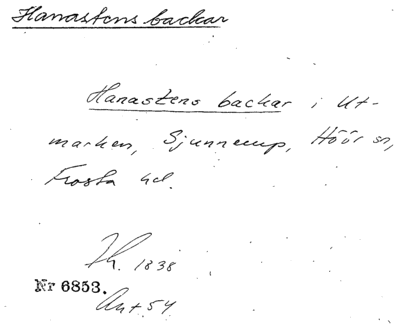 Hanastens backar
Hanastens backar i Ut-
marken, Sjunnerup, Höör sn,
Frosta hd.
1838
Nr 6853.
Ant. 54